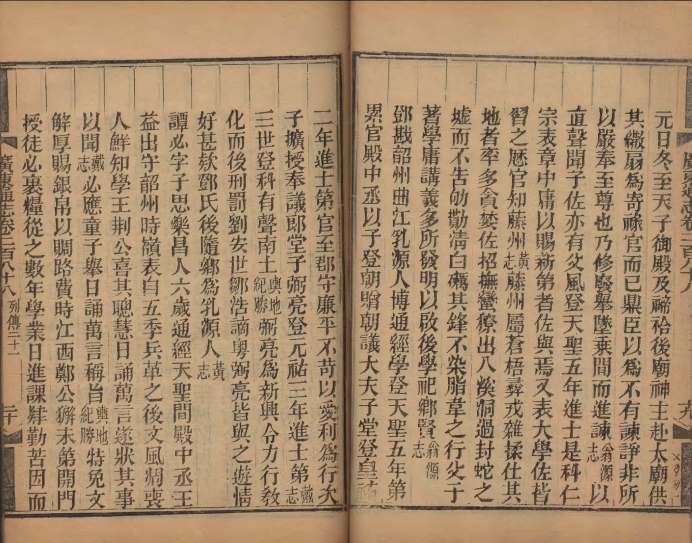 元日冬至天子御殿及禘祫後廟神士赴太廟供
其繖扇爲寄祿官而已鼎臣以爲不有諫諍非所
以嚴奉至尊也乃修廢舉墜乘間而進諫翁源志以
直聲聞子佐亦有父風登天聖五年進士是科仁
宗表章中庸以賜新第者佐與焉又表大學佐皆
習之歷官知藤州黃志藤州屬蒼梧彝戎雜揉仕其
地者率多貪婪佐招撫蠻獠出八奚洞過封蛇之
墟而不告劬勩清白礪其鋒不染脂韋之行父子
著學庸講義多所發明以啟後學祀鄉賢翁源志
鄧戡韶州曲江乳源人博通經學登天聖五年第
累官殿中丞以子登朝贈朝議大夫子堂登皇祐
二年進士第官至郡守廉平不苛以愛利爲行次
子擴授奉議郎堂子弼亮登元祐三年進士第戴志
三世登科有聲南土輿地紀勝弼亮爲新興令力行敎
化而後刑罰劉安世鄒浩謫粵弼亮皆與之遊情
好甚款鄧氏後隨鄉爲乳源人黃志
譚必字子思樂昌人六歲通經天聖間殿中丞王
益出守韶州時嶺表自五季兵革之後文風凋喪
人鮮知學王荆公喜其聰慧日誦萬言遂狀其事
以聞戴志必應童子舉日誦萬言稱旨輿地紀勝特免文
解厚賜銀帛以賙路費時江西鄭公獬未第開門
授徒必裹糧從之數年學業日進課肄勤苦因而
廣東通志卷二百八十八 列傳二十一 二十